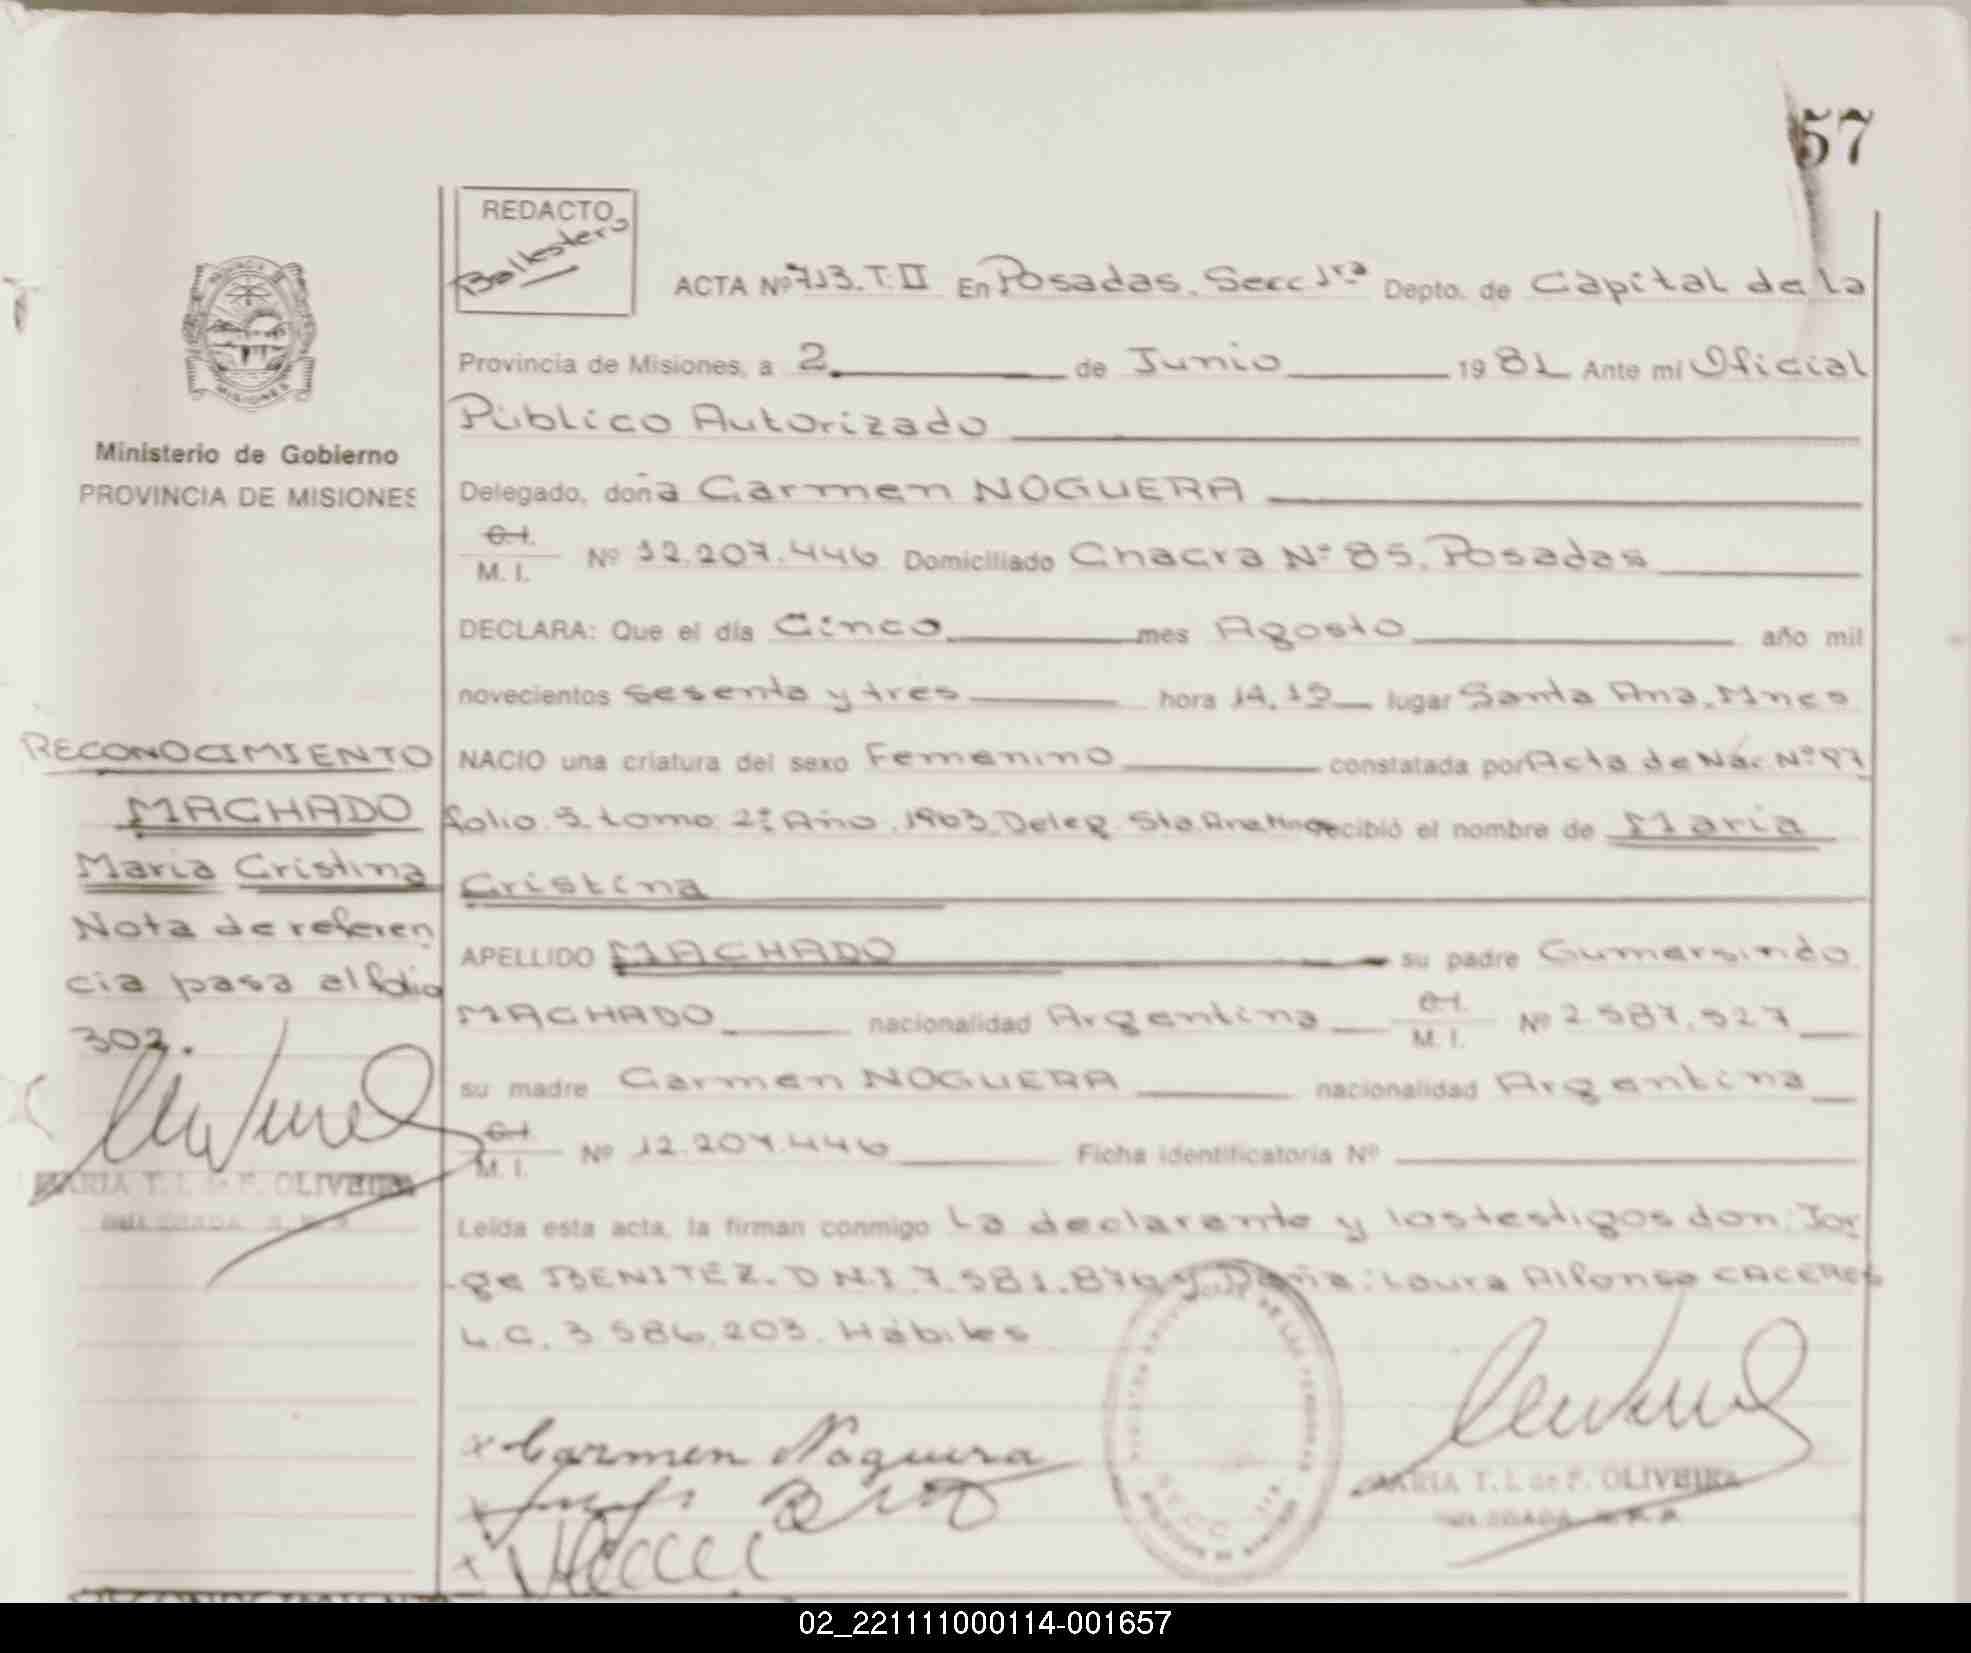 57
REDACTO
Ballestero
ACTA Nº 713. T. II En Posadas. Secc 1ra Depto. de Capital de la
Provincia de Misiones, a 2 de Junio 1981 Ante mi Oficial
Público Autorizado
Ministerio de Gobierno
PROVINCIA DE MISIONES
Delegado, doña Carmen NOGUERA
C.I.
M. I. Nº 12.207.446 Domiciliado Chacra Nº 85. Posadas
DECLARA: Que el día Cinco mes Agosto año mil
novecientos sesenta y tres hora 14,15 lugar Santa Ana. Mnes
NACIO una criatura del sexo Femenino constatada por Acta de Nac. Nº 97
folio 3 tomo 2º Año 1963 Deleg. Sta. Ana Mnes recibió el nombre de María
Cristina
APELLIDO MACHADO su padre Gumersindo
MACHADO nacionalidad Argentina C.I.
M. I. Nº 2.587.527
su madre Carmen NOGUERA nacionalidad Argentina
C.I.
M. I. Nº 12.207.446 Ficha identificatoria Nº
Leída esta acta, la firman conmigo la declarante y los testigos don: Jor
ge BENITEZ. D.N.I. 7.581.874 y Doña: Laura Alfonsa CACERES
L.C. 3.586.203. Hábiles
RECONOCIMIENTO
MACHADO
María Cristina
Nota de referen
cia pasa al folio
302.
MARIA T. I. de F. OLIVEIRA
DELEGADA
Carmen Noguera
MARIA T. I. de F. OLIVEIRA
DELEGADA
RECONOCIMIENTO
02_221111000114-001657